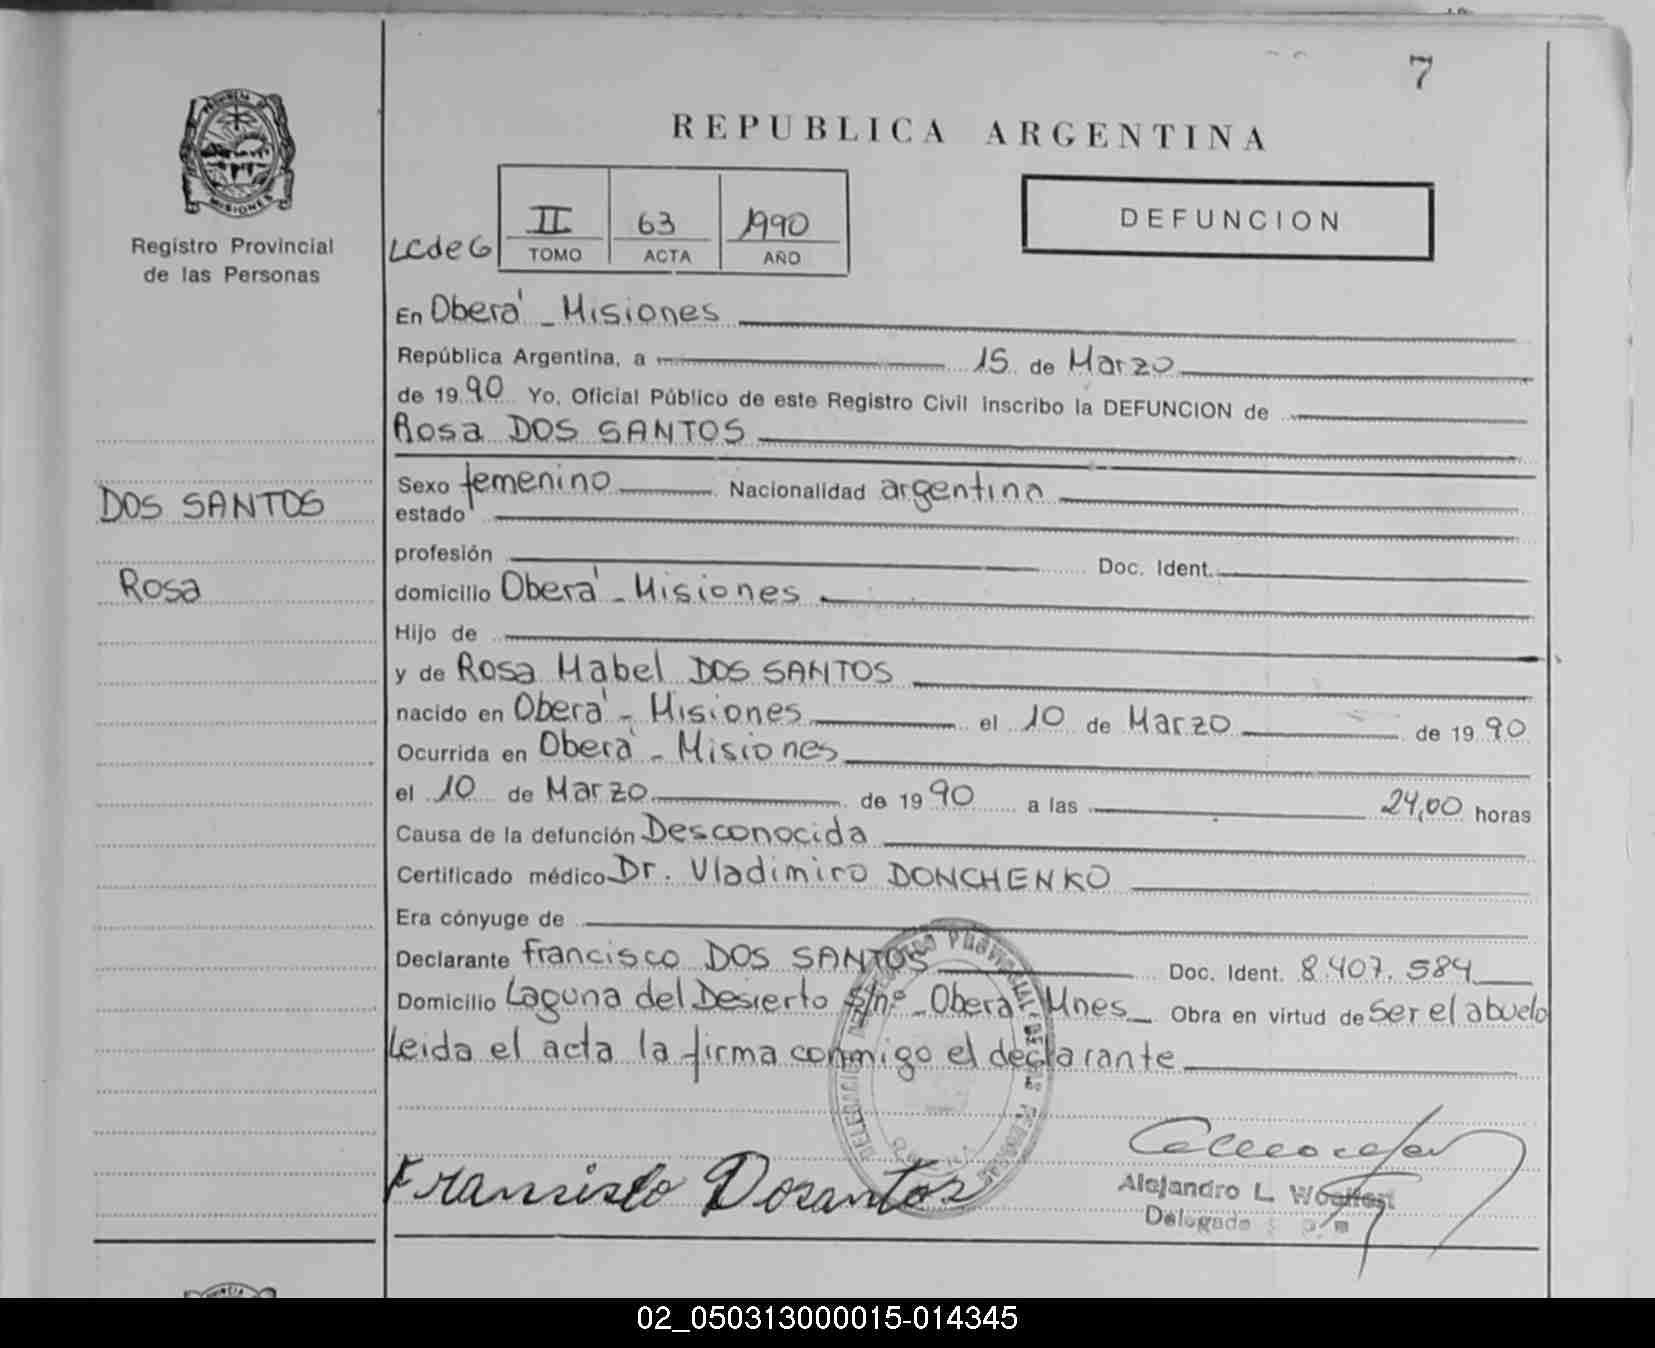 7
REPUBLICA ARGENTINA
PROVINCIA DE
MISIONES
Registro Provincial
de las Personas
LCdeG
II 63 1990
TOMO ACTA AÑO
DEFUNCION
En Oberá - Misiones
República Argentina, a 15 de Marzo
de 1990 Yo, Oficial Público de este Registro Civil inscribo la DEFUNCION de
Rosa DOS SANTOS
DOS SANTOS
Rosa
Sexo femenino Nacionalidad argentina
estado
profesión Doc. Ident.
domicilio Oberá - Misiones
Hijo de
y de Rosa Mabel DOS SANTOS
nacido en Oberá - Misiones el 10 de Marzo de 1990
Ocurrida en Oberá - Misiones
el 10 de Marzo de 1990 a las 24,00 horas
Causa de la defunción Desconocida
Certificado médico Dr. Vladimiro DONCHENKO
Era cónyuge de
Declarante Francisco DOS SANTOS Doc. Ident. 8.407.584
Domicilio Laguna del Desierto s/nº - Oberá Mnes Obra en virtud de ser el abuelo
Leida el acta la firma conmigo el declarante
Fransisto Dosantos
Alejandro L.
Delegado
02_050313000015-014345